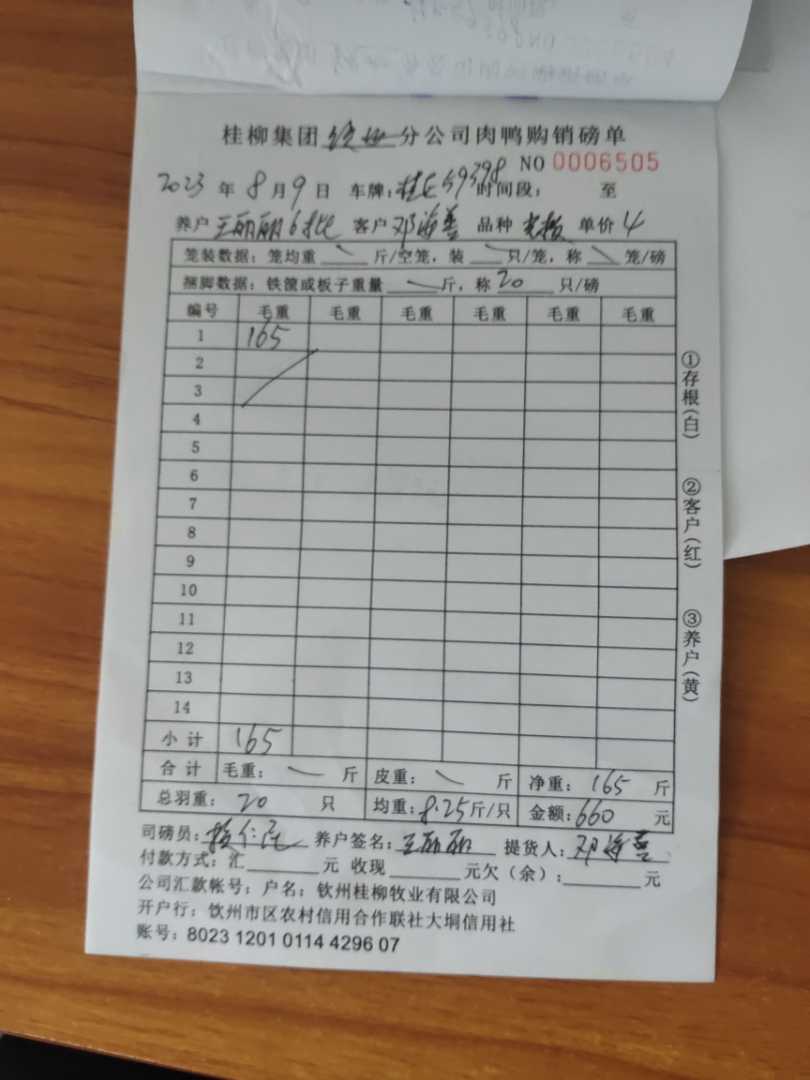 桂柳集团 钦州 分公司肉鸭购销磅单
NO 0006505
2023 年 8 月 9 日 车牌: 时间段: 至
养户 王丽丽6批 客户 邓海善 品种 单价 4
笼装数据: 笼均重 斤/空笼, 装 只/笼, 称 笼/磅
捆脚数据: 铁筐或板子重量 斤, 称 20 只/磅
编号 毛重 毛重 毛重 毛重 毛重 毛重
1 165
2
3
4
5
6
7
8
9
10
11
12
13
14
小计 165
合计 毛重: 斤 皮重: 斤 净重: 165 斤
总羽重: 20 只 均重: 8.25 斤/只 金额: 660 元
司磅员: 养户签名: 王丽丽 提货人: 邓海善
付款方式: 汇 元 收现 元欠(余): 元
公司汇款帐号: 户名: 钦州桂柳牧业有限公司
开户行: 钦州市区农村信用合作联社大垌信用社
账号: 8023 1201 0114 4296 07
①存根(白)
②客户(红)
③养户(黄)